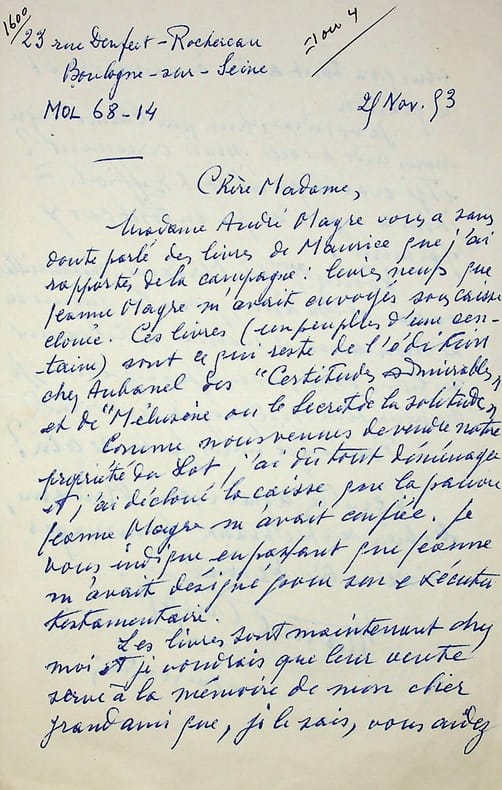 1600
23 rue Denfert-Rochereau
Boulogne-sur-Seine
MOL 68-14
Nov. 53
Chère Madame,
Madame André Magre vous a sans
doute parlé des livres de Maurice que j'ai
rapportés de la campagne : livres neufs que
Jeanne Magre m'avait envoyés sous caisse
clouée. Ces livres (un peu plus d'une cen-
-taine) sont ce qui reste de l'édition
chez Aubanel des "Certitudes admirables,,
et de "Mélusine ou le Secret de la solitude,,
Comme nous venons de vendre notre
propriété du Lot, j'ai dû tout déménager
et j'ai décloué la caisse que la pauvre
Jeanne Magre m'avait confiée. Je
vous indique en passant que Jeanne
m'avait désigné pour son exécuteur
testamentaire.
Les livres sont maintenant chez
moi et je voudrais que leur vente
serve à la mémoire de mon cher
grand ami que, je le sais, vous aimez